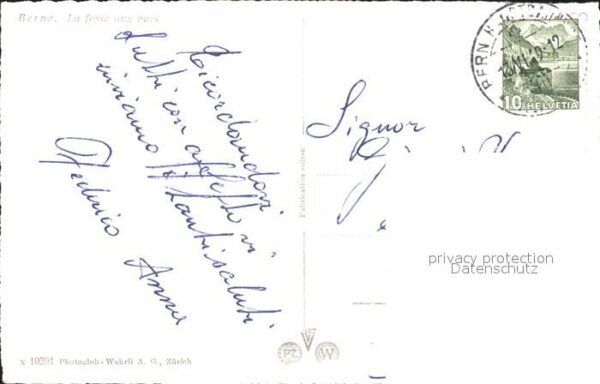 Berne. La fosse aux ours
Ricordandovi
tutti con affetto vi
inviamo tanti saluti
Federico Anna
Signor
Fabrication suisse
BERN
10 HELVETIA
privacy protection
Datenschutz
PZ W
x 10391 Photoglob-Wehrli A. G., Zürich